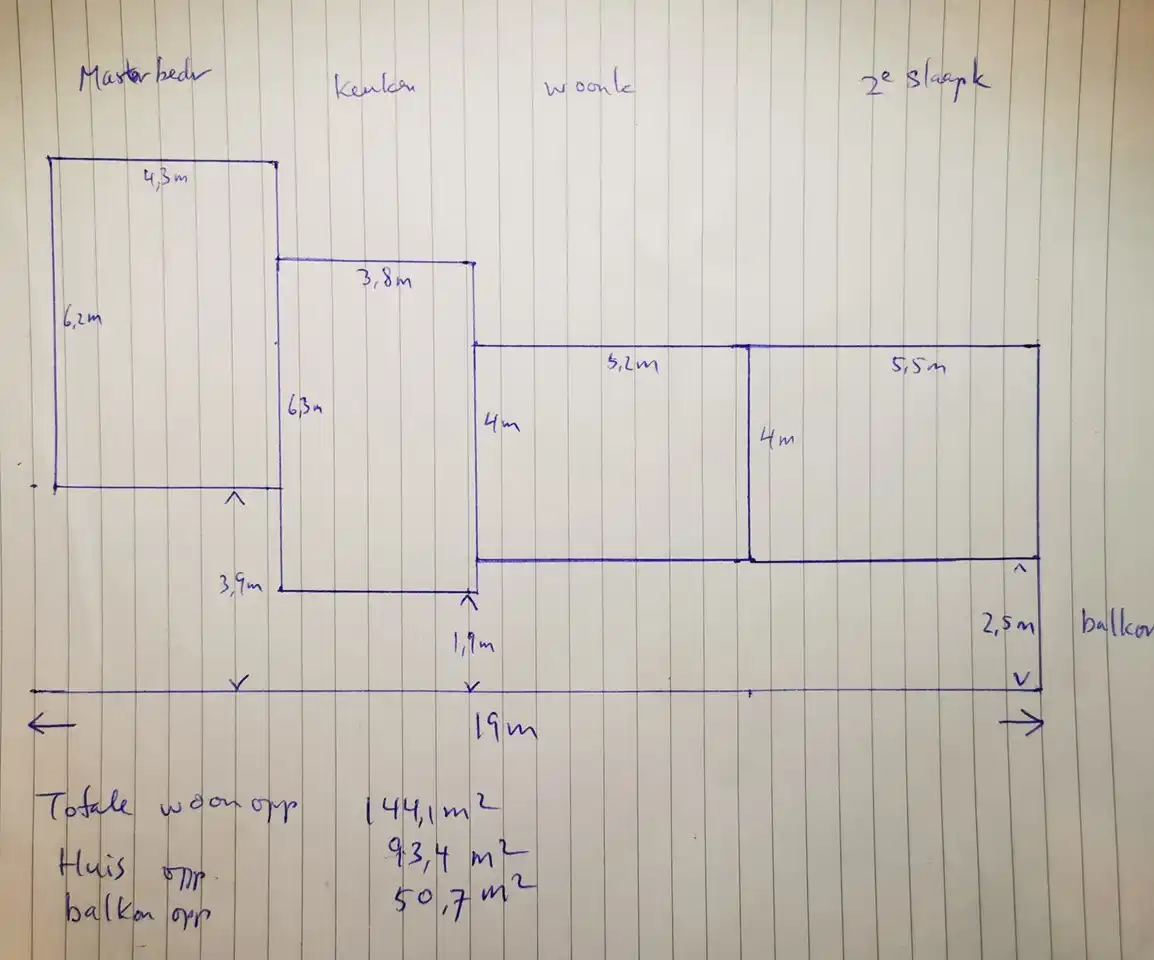 Masterbedr
keuken
woonk
2e slaapk
4,3m
3,8m
6,2m
5,2m
5,5m
6,3m
4m
4m
3,9m
1,9m
2,5m
balkon
19m
Totale woonopp 144,1m²
Huis opp. 93,4 m²
balkon opp 50,7 m²